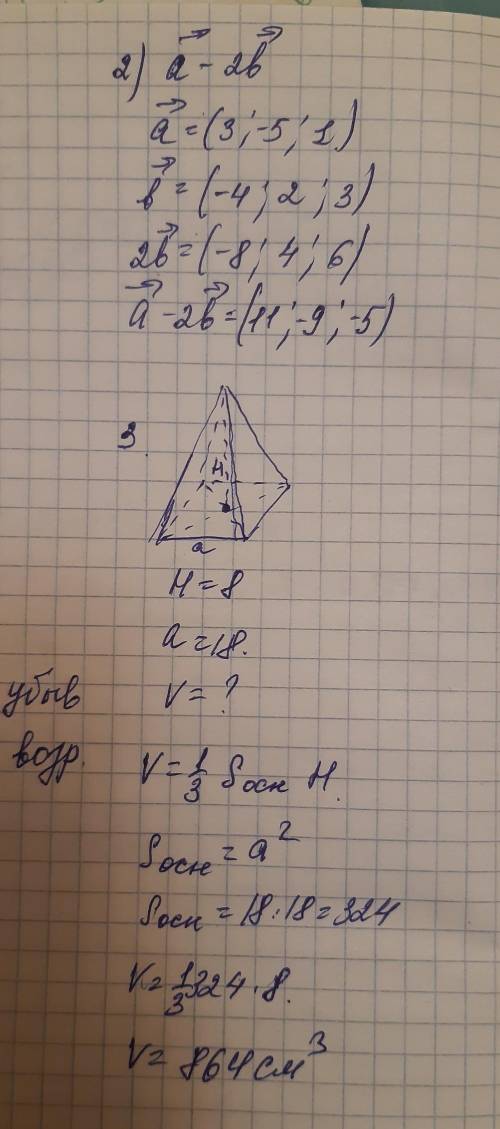 2) a⃗ - 2b⃗
a⃗ = (3 ; -5 ; 1)
b⃗ = (-4 ; 2 ; 3)
2b⃗ = (-8 ; 4 ; 6)
a⃗ - 2b⃗ = (11 ; -9 ; -5)
3.
H
a
H = 8
a = 18.
V = ?
убыв
возр.
V = 1/3 Sосн H.
Sосн = a²
Sосн = 18 · 18 = 324
V = 1/3 324 · 8.
V = 864 см³